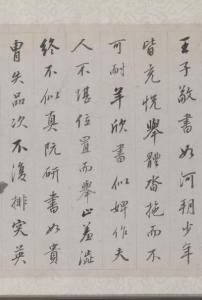 王子敬書如河朔少年
皆充悅舉體沓拖而不
可耐羊欣書似婢作夫
人不堪位置而舉止羞澁
終不似真阮研書如貴
胄失品次不復排突英